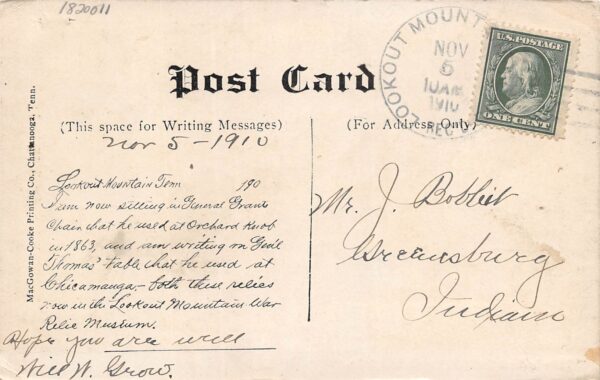 1820011
LOOKOUT MOUNT
NOV
5
10AM
1910
REC'D
U.S. POSTAGE
ONE CENT
Post Card
(This space for Writing Messages)
(For Address Only)
Nov 5 - 1910
MacGowan-Cooke Printing Co., Chattanooga, Tenn.
Lookout Mountain Tenn 190
I am now sitting in General Grants
Chair that he used at Orchard Knob
in 1863, and am writing on Genl
Thomas' table that he used at
Chicamauga - both these relics
now in the Lookout Mountain War
Relic Museum.
Hope you are well
Will W. Grow.
Mr. J. Bobbitt
Greensburg
Indiana